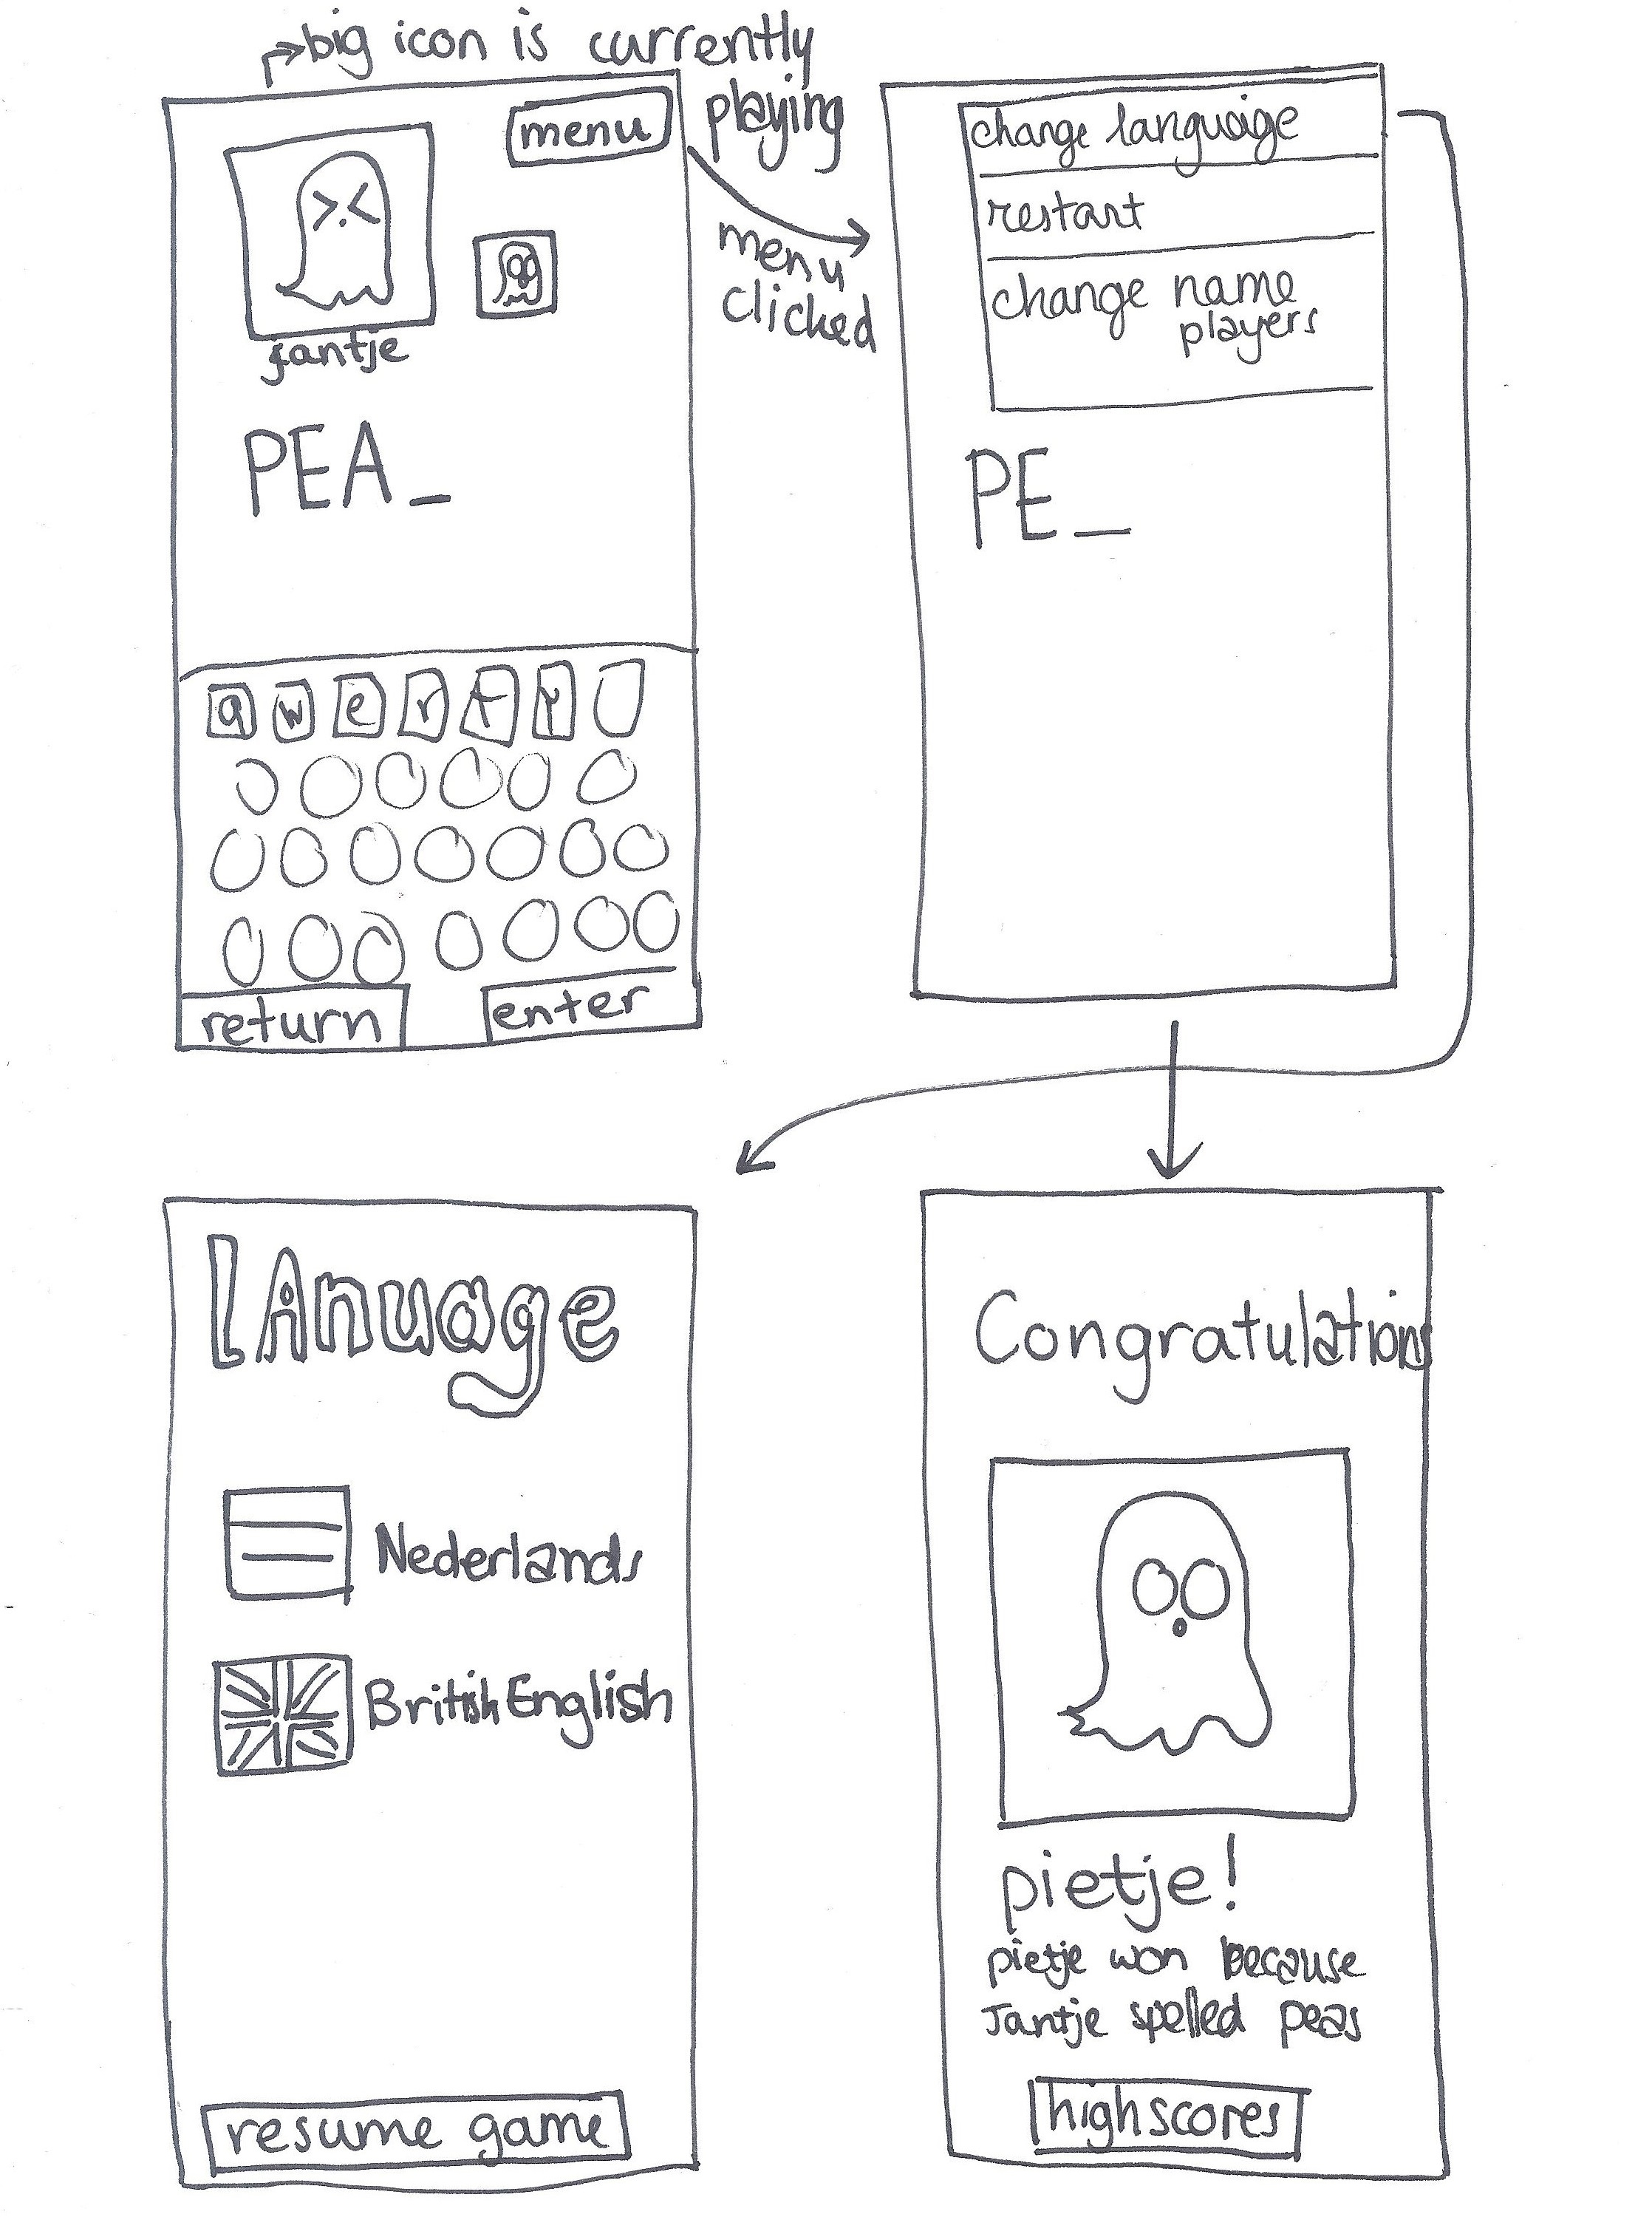 big icon is currently
playing
menu
jantje
PEA_
menu
clicked
change language
restart
change name
players
PE_
q w e r t y
return
enter
lAnuage
Nederlands
British English
resume game
Congratulations
pietje!
pietje won because
Jantje spelled peas
highscores